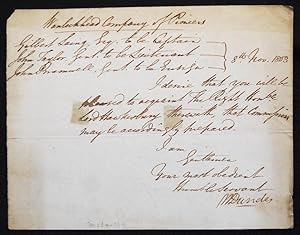 Wanlockhead Company of Pioneers
Gilbert Laing Esq. to be Captain
John Taylor, Gent. to be Lieutenant
8th Nov. 1803
John Bramwell, Gent. to be Ensign
I desire that you will be
pleased to acquaint the Right Honble
Lord Hawkesbury therewith, that Commissions
may be accordingly prepared.
I am
Gentlemen
Your most obedient
humble Servant
Dundas